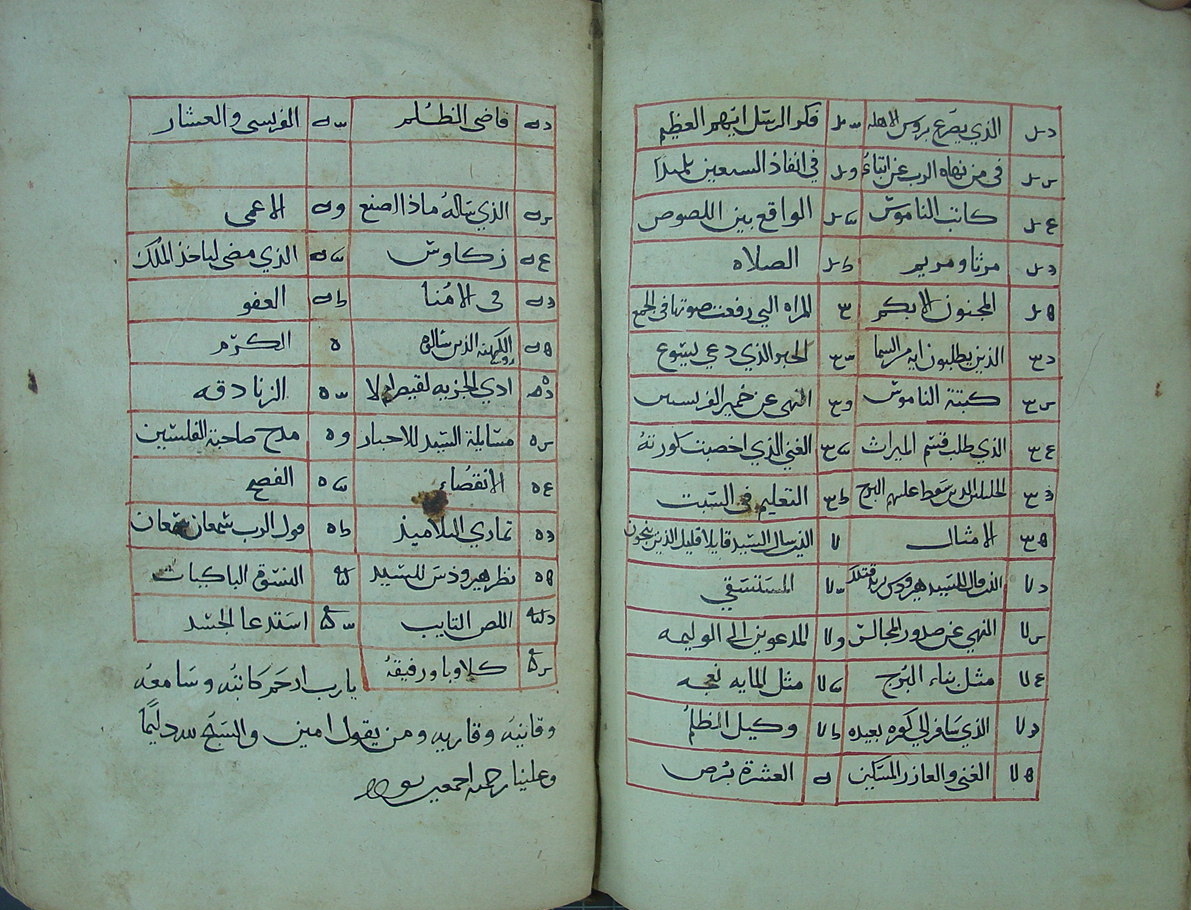 الذي يصرع بروس الاهله فكر الرسل ايهم العظيم
في من نهاه الرب عن اتباعه في انفاذ السبعين تلميذا
كاتب الناموس الواقع بين اللصوص
مرتا ومريم الصلاه
المجنون الابكم المراه التي رفعت صوتها في الجمع
الذين يطلبون ايه من السما الحبر الذي دعي ليسوع
كتبة الناموس النهي عن خمير الفريسيين
الذي طلب قسم الميراث الغني الذي اخصبت كورته
الجليليين الذين سقط عليهم البرج التعليم في السبت
الامثال الذي سال السيد قايلا قليل الذين ينجون
الذي قال للسيد هيرودس يريد قتلك المستسقي
النهي عن صدور المجالس المدعوين الى الوليمه
مثل بناء البرج مثل المايه نعجه
الذي سافر الي كوره بعيده وكيل الظلم
الغني والعازر المسكين العشرة برص
قاضي الظلم الفريسي والعشار
الذي ساله ماذا اصنع الاعمى
زكاوس الذي مضى لياخذ الملك
في الامنا العفو
الكهنه الذين سالوه الكرم
ادي الجزيه لقيصر ام لا الزنادقه
مسايلة السيد للاحبار مدح صاحبة الفلسين
الانقضاء الفصح
تماري التلاميذ قول الرب شمعان شمعان
نظر هيرودس للسيد النسوة الباكيات
اللص التايب استدعا الجسد
كلاوبا ورفيقه
يا رب ارحم كاتبه وسامعه
وقانيه وقاريه ومن يقول امين والسبح لله دايما
وعلينا رحمته اجمعين